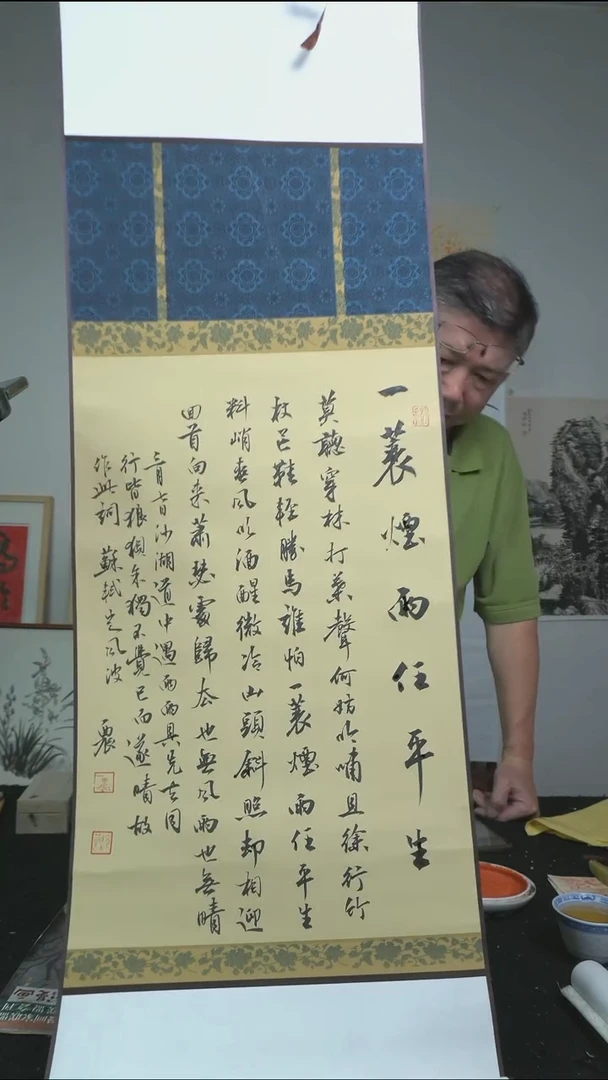 一蓑煙雨任平生
莫聽穿林打葉聲何妨吟嘯且徐行竹
杖芒鞋輕勝馬誰怕一蓑煙雨任平生
料峭春風吹酒醒微冷山頭斜照却相迎
回首向來蕭瑟處歸去也無風雨也無晴
三月七日沙湖道中遇雨雨具先去同
行皆狼狽余獨不覺已而遂晴故
作此詞 蘇軾定風波 農